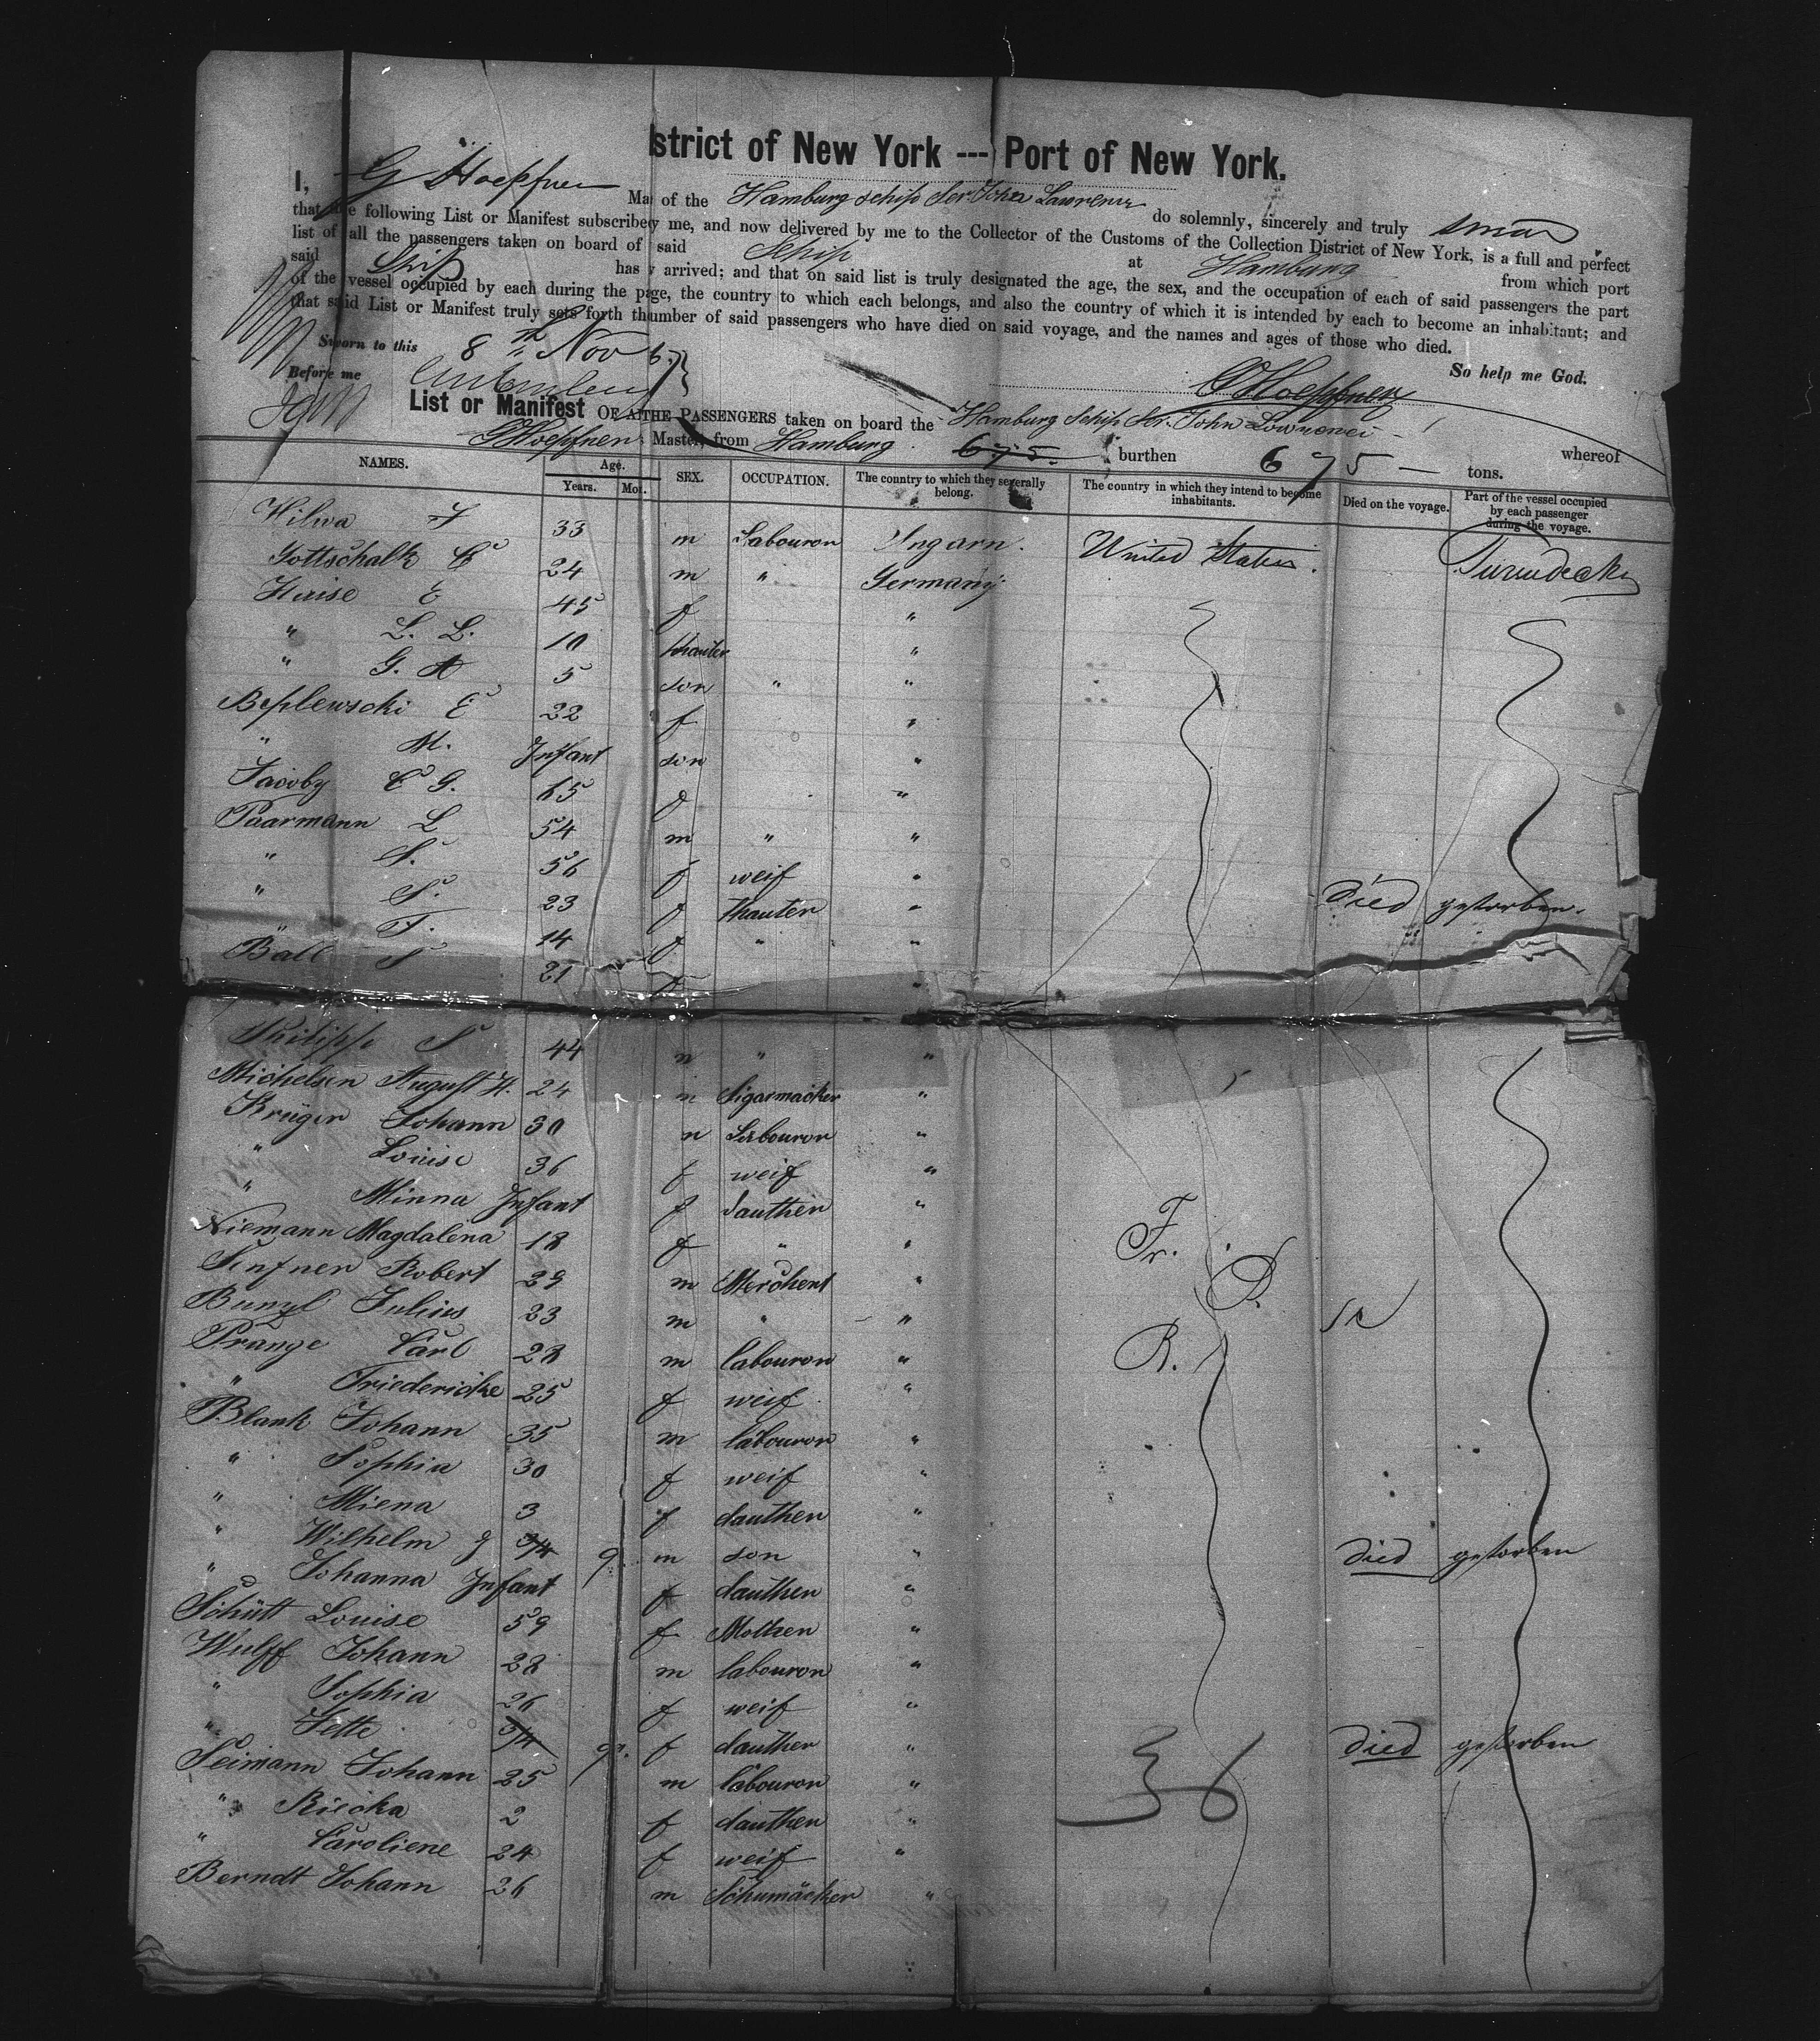 strict of New York --- Port of New York.
I, G Hoepfner Ma of the Hamburg schip Sir John Lawrence do solemnly, sincerely and truly swear
that the following List or Manifest subscribe y me, and now delivered by me to the Collector of the Customs of the Collection District of New York, is a full and perfect
list of all the passengers taken on board of said Schip at Hamburg from which port
said Ship has arrived; and that on said list is truly designated the age, the sex, and the occupation of each of said passengers the part
of the vessel occupied by each during the p ge, the country to which each belongs, and also the country of which it is intended by each to become an inhabitant; and
that said List or Manifest truly sets forth th umber of said passengers who have died on said voyage, and the names and ages of those who died.
Sworn to this 8th Nov 6. So help me God.
Before me GHoepfner
List or Manifest OF A THE PASSENGERS taken on board the Hamburg Schip Sir John Lawrence whereof
GHoepfner Master, from Hamburg 675 burthen 675 — tons.
NAMES. Age. Years. Mos. SEX. OCCUPATION. The country to which they severally belong. The country in which they intend to become inhabitants. Died on the voyage. Part of the vessel occupied by each passenger during the voyage.
Wilwa 33 m Labouron Ungarn. United States.
Gottschalk C 24 m " Germany
Heise E 45 f "
" L. L. 10 "
" G. A 5 son " "
Beplewski E 22 f "
" M. Infant son "
Jacoby C G. 65 f "
Paarmann L 54 m " "
" S. 56 f weif "
" S. 23 f thauter " Died gestorben.
" F. 14 f " "
Ball S 21 f "
Philipp S 44 m " "
Michelsen August H. 24 m Sigarmacker "
Krüger Johann 30 m Labouron "
" Louise 36 f weif "
" Minna Infant f dauther "
Niemann Magdalena 18 f " " Fr.
Robert 29 m Merchent " D.
Bunzl Julius 23 m " "
Prange Carl 28 m labouron " R.
" Friedericke 25 f weif "
Blank Johann 35 m labouron "
" Sophia 30 f weif "
" Miena 3 f dauther "
" Wilhelm J 3/4 9. m son " Died gestorben
" Johanna Infant f dauther "
Schütt Louise 59 f Mother "
Wulff Johann 28 m labouron "
" Sophia 26 f weif "
" Jette 3/4 9. f dauther " Died gestorben
Seimann Johann 25 m labouron " 36
" Riecka 2 f dauther "
" Caroliene 24 f weif "
Berndt Johann 26 m Schumäcker "